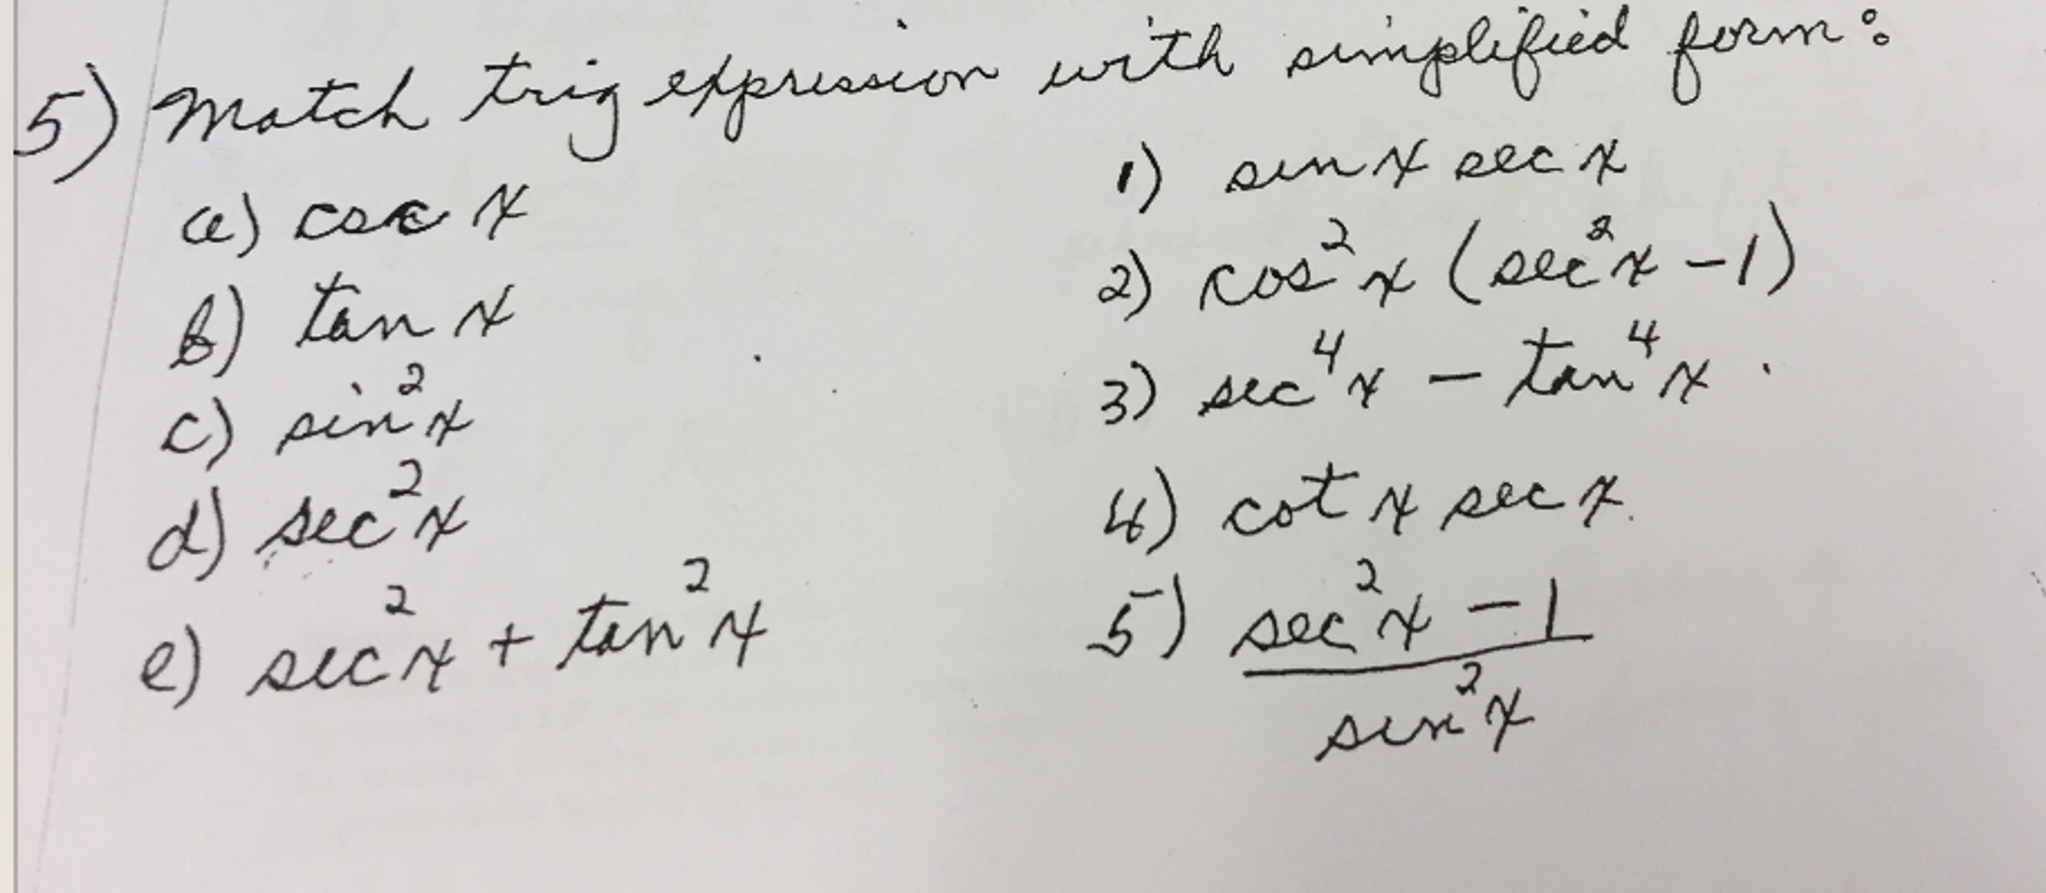 5) Match trig expression with simplified form:
a) csc x
b) tan x
c) sin²x
d) sec²x
e) sec²x + tan²x
1) sin x sec x
2) cos²x (sec²x - 1)
3) sec⁴x - tan⁴x.
4) cot x sec x.
5) sec²x - 1
sin²x